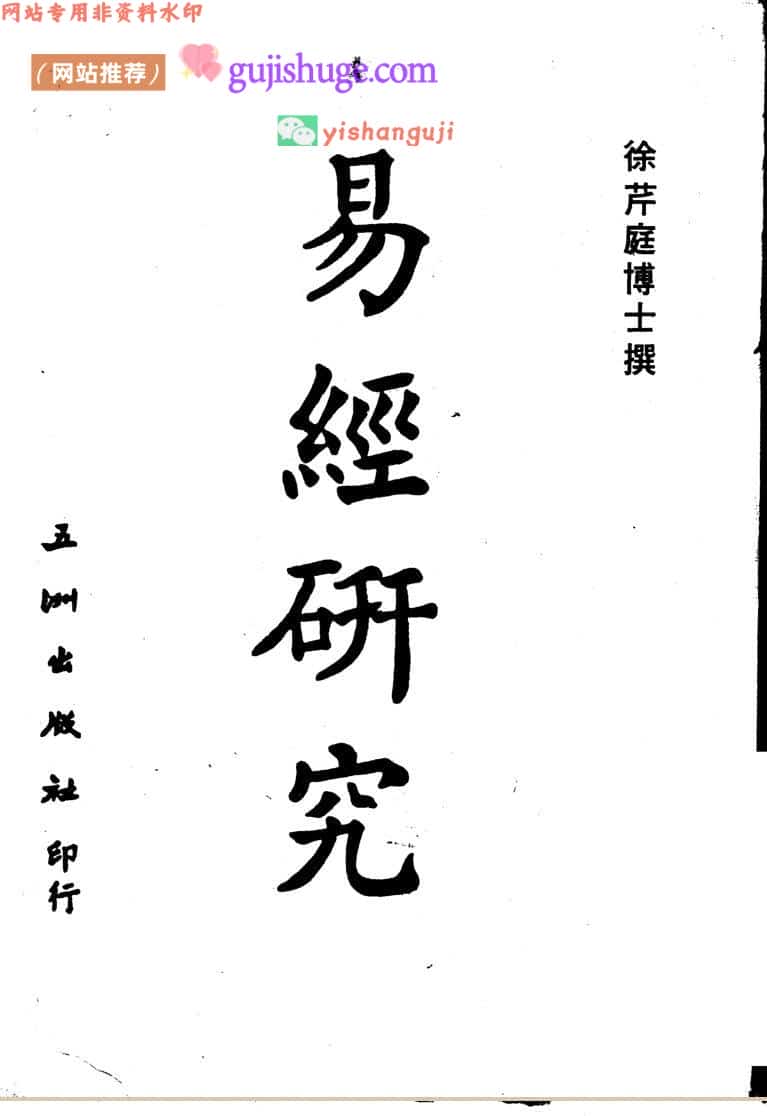 网站专用非资料水印
(网站推荐) gujishuge.com
yishanguji
徐芹庭博士撰
易經研究
五洲出版社印行